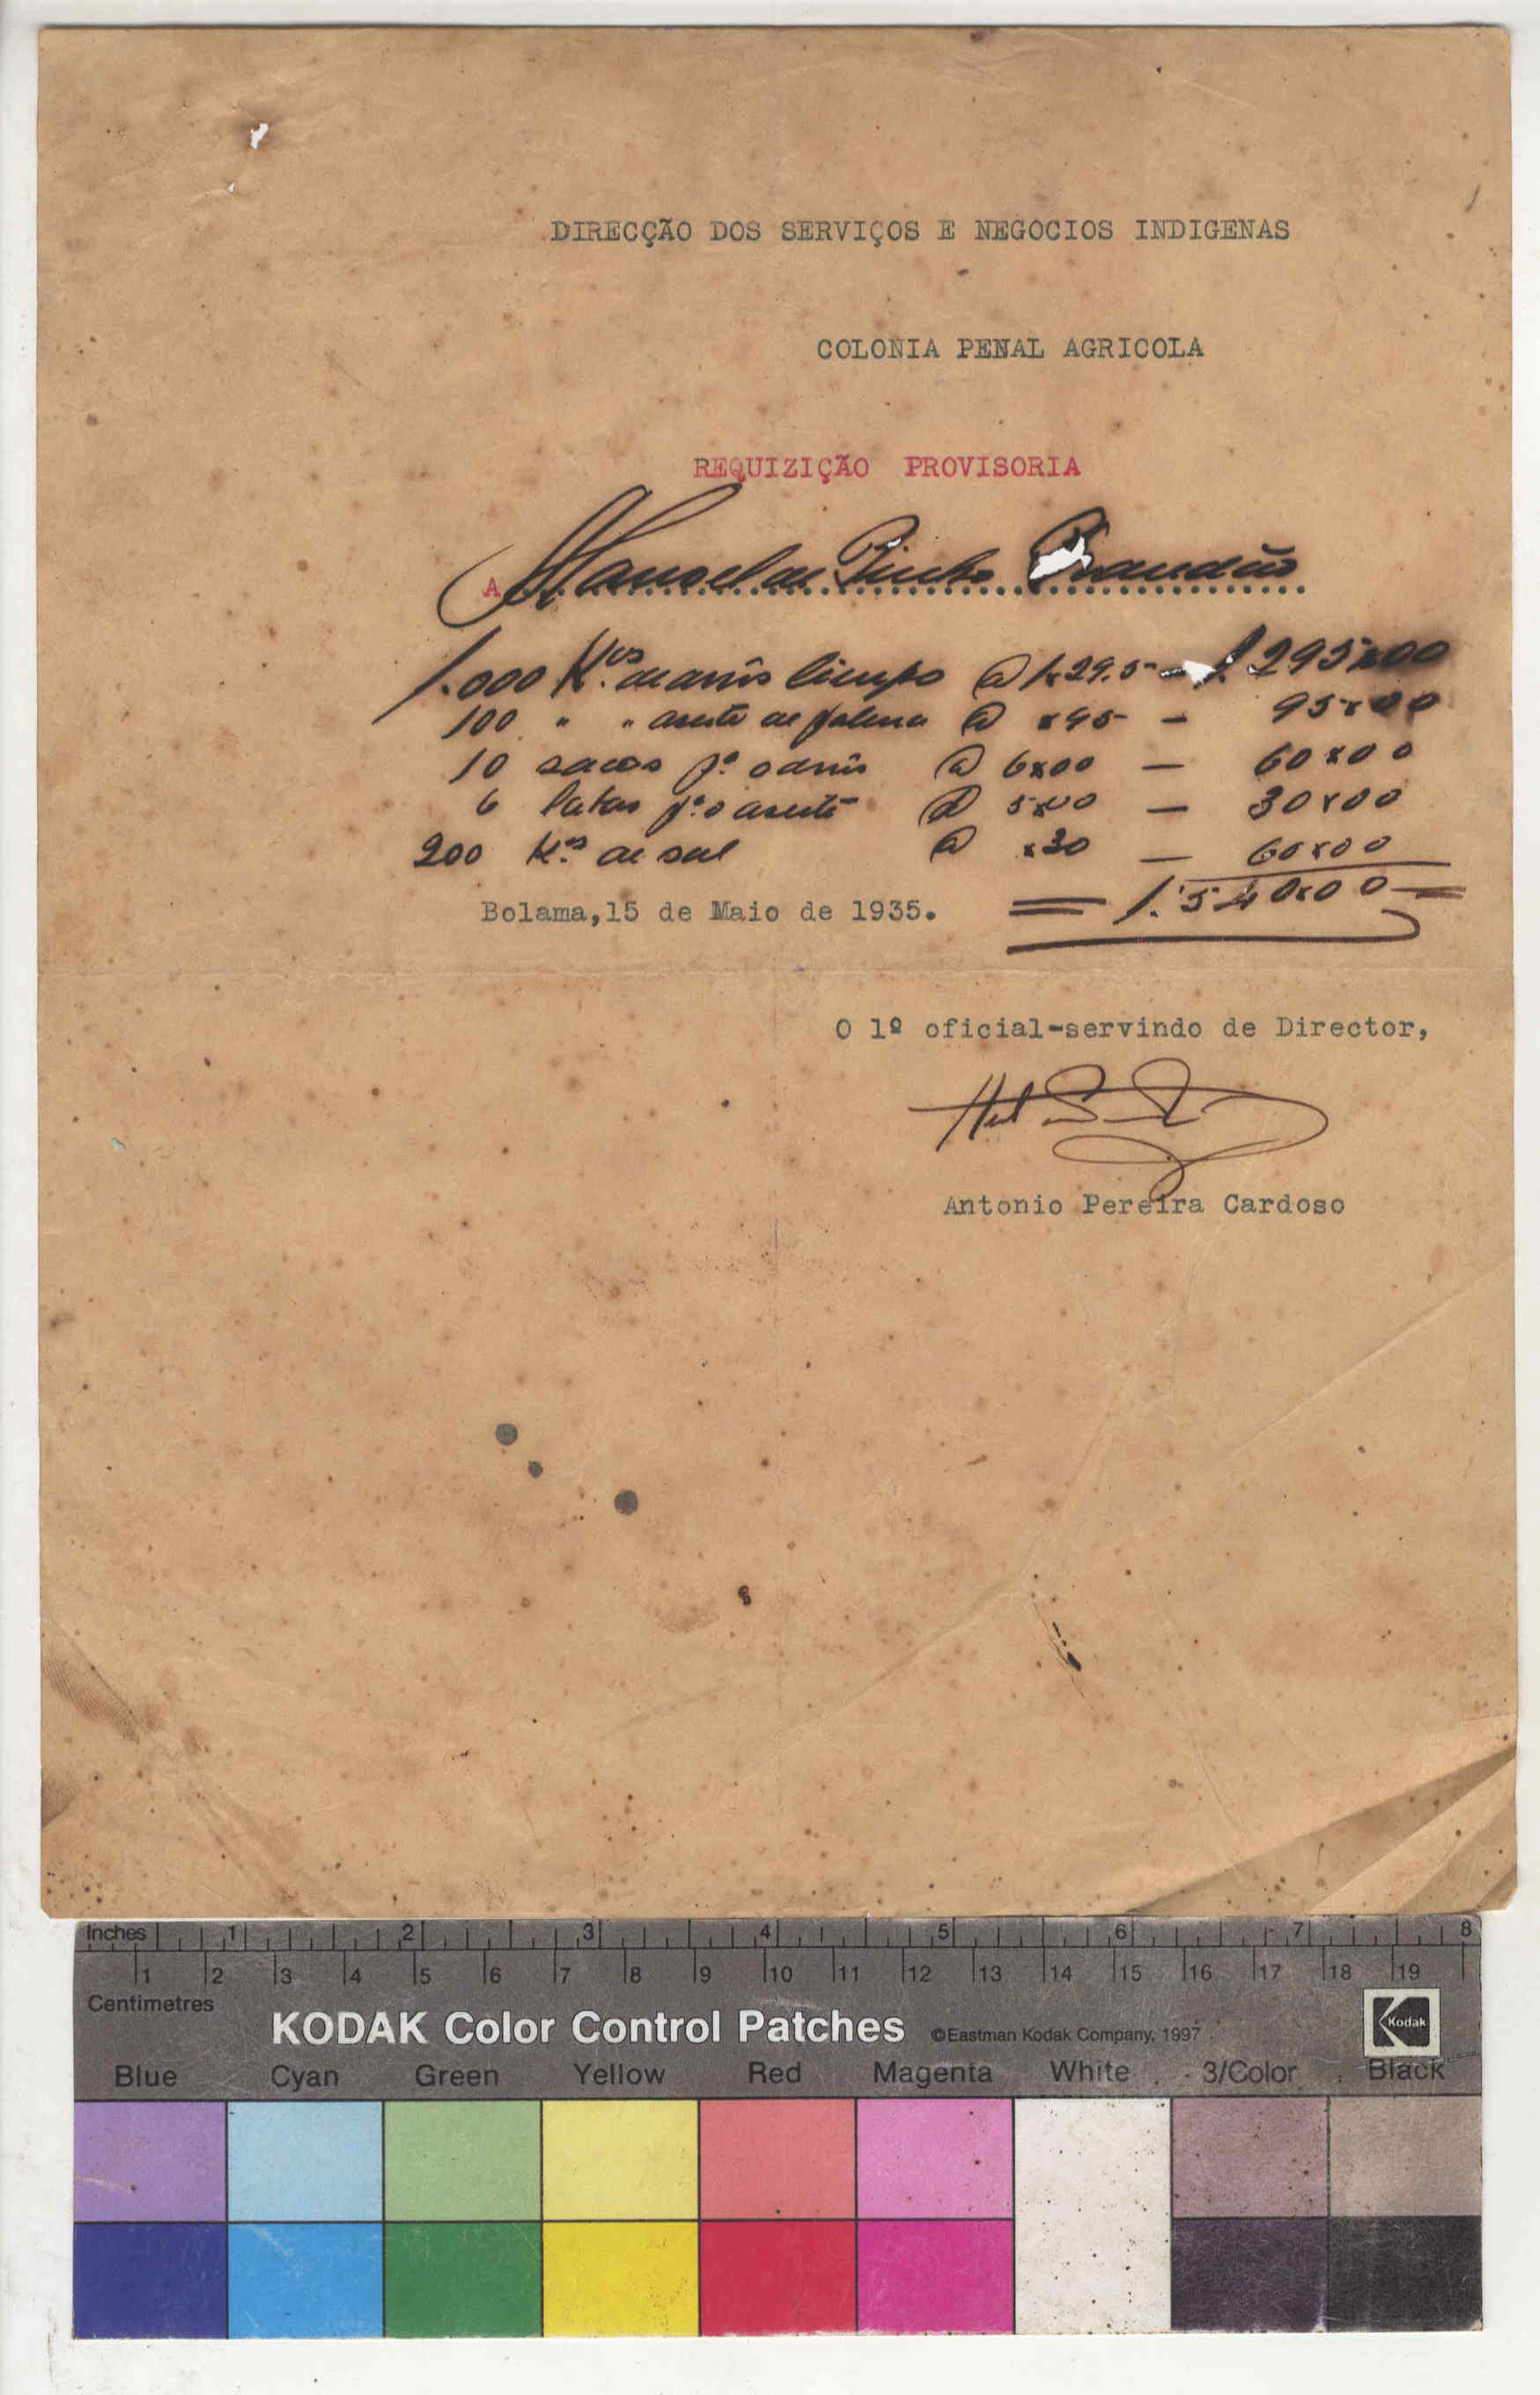 DIRECÇÃO DOS SERVIÇOS E NEGOCIOS INDIGENAS
COLONIA PENAL AGRICOLA
REQUIZIÇÃO PROVISORIA
A Manoel de Pinho Brandão
1.000 K.os de arrôs limpo @ 1x29,5 — 1.295x00
100 " " aseite de palma @ x95 — 95x00
10 sacos p.a o arrôs @ 6x00 — 60x00
6 latas p.a o aseite @ 5x00 — 30x00
200 K.os de sal @ x30 — 60x00
Bolama,15 de Maio de 1935. = 1.540x00 =
O 1º oficial-servindo de Director,
Antonio Pereira Cardoso
Inches 1 2 3 4 5 6 7 8
1 2 3 4 5 6 7 8 9 10 11 12 13 14 15 16 17 18 19
Centimetres
KODAK Color Control Patches ©Eastman Kodak Company, 1997 Kodak
Blue Cyan Green Yellow Red Magenta White 3/Color Black